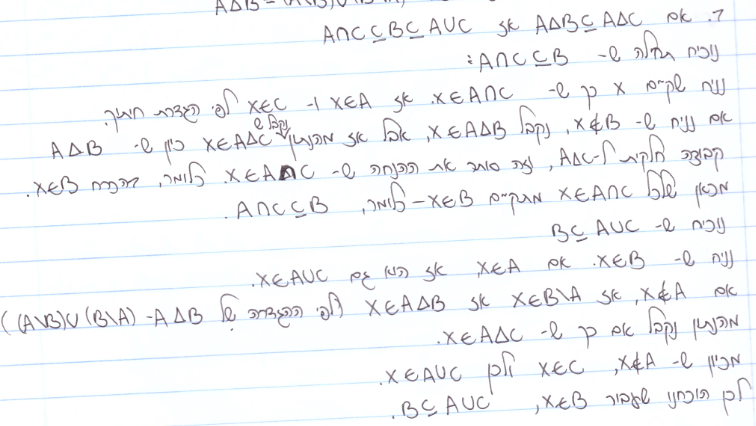 AΔB = (A\B)∪(B\A)
ד. אם AΔB⊆AΔC אז A∩C⊆B⊆A∪C
נוכיח תחילה ש- A∩C⊆B:
נניח שקיים x כך ש- x∈A∩C. אז x∈A ו- x∈C לפי הגדרת חיתוך.
אם נניח ש- x∉B, נקבל x∈AΔB, אבל אז מהנתון נקבל ש x∈AΔC כיון ש- AΔB
קבוצה חלקית ל-AΔC, וזה סותר את ההנחה ש- x∈A∩C. כלומר, בהכרח x∈B.
מכאן שלכל x∈A∩C מתקיים x∈B – כלומר, A∩C⊆B.
נוכיח ש- B⊆A∪C
נניח ש- x∈B. אם x∈A, אז הוא גם x∈A∪C.
אם x∉A, אז x∈B\A אז x∈AΔB (לפי ההגדרה של AΔB - (A\B)∪(B\A))
מהנתון נקבל אם כך ש- x∈AΔC.
מכיון ש- x∉A, x∈C ולכן x∈A∪C.
לכן הוכחנו שעבור x∈B, B⊆A∪C.